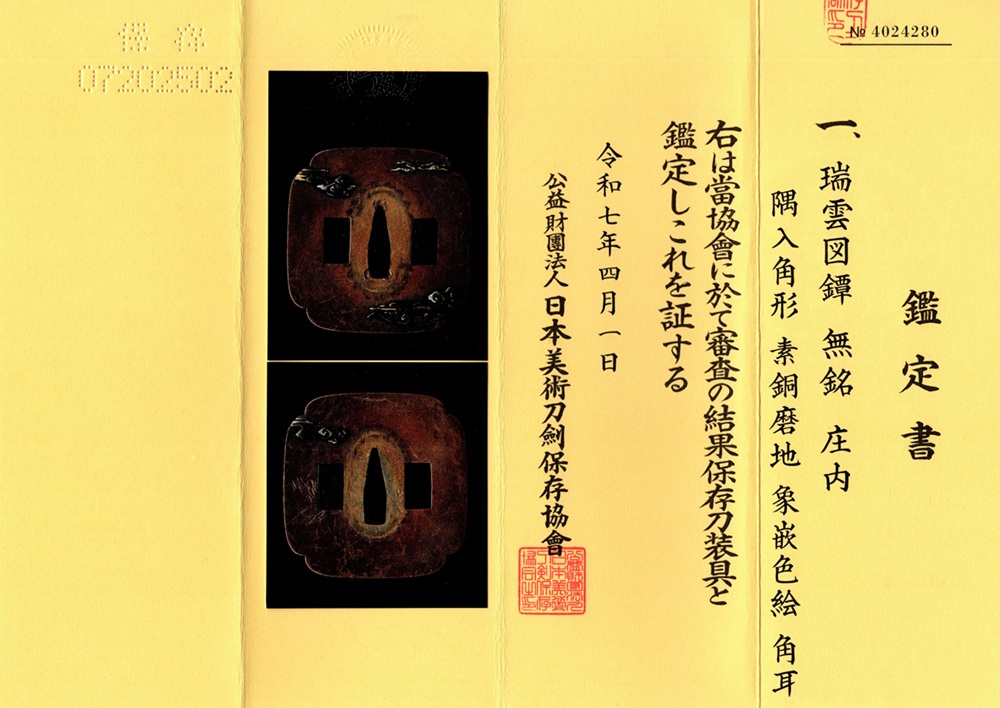 № 4024280
鑑定書
一、瑞雲図鐔 無銘 庄内
隅入角形 素銅磨地 象嵌色絵 角耳
右は當協會に於て審査の結果保存刀装具と
鑑定しこれを証する
令和七年四月一日
公益財團法人 日本美術刀劍保存協會
保存
07202502